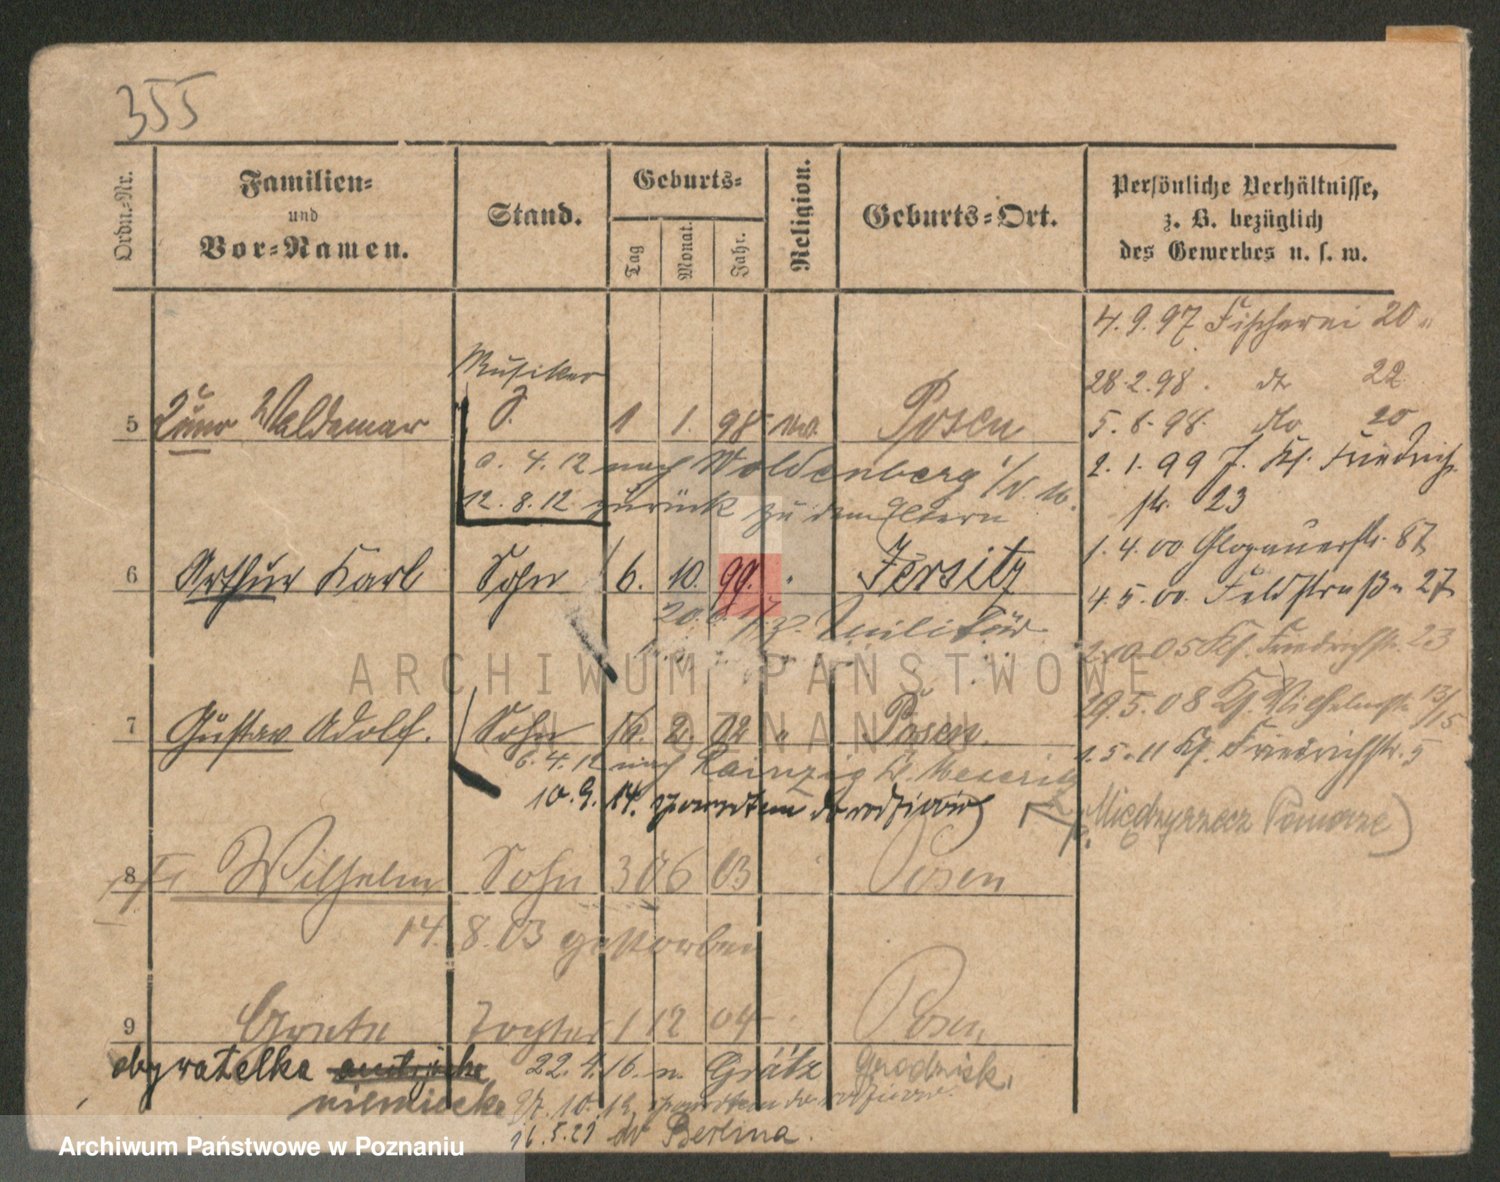 355
Ordn.-Nr.
Familien-
und
Vor-Namen.
Stand.
Geburts-
Tag
Monat.
Jahr.
Religion.
Geburts-Ort.
Persönliche Verhältnisse,
z. B. bezüglich
des Gewerbes u. s. w.
4.9.97 Fischerei 20
28.2.98. do 22
Musiker
5 Waldemar S. 1 1. 98 Posen
5.6.98. do 20
4.12 nach Woldenberg
2.1.99 J. Kl. Friedrich
str. 23
12.8.12 zurück zu den Eltern
1.4.00 Glogauerstr. 87
6 Arthur Karl Sohn 6. 10. 99. " Jersitz
4.5.00. Feldstraße 27
z. Militär
2.10.05 Kl. Friedrichstr. 23
29.5.08 Kl. 13/15
7 Gustav Adolf. Sohn 16. 2. 02 " Posen.
1.5.11 Kl. Friedrichstr. 5
6.4.12 nach
10.9.14. zpowrotem do rodziców
Międzyrzecz Pomorze)
8 Wilhelm Sohn 30 6 03 Posen
14.8.03 gestorben
9 Grete Tochter 1 12 04 Posen
obywatelka
niemiecka
22.4.16. n. Grätz Grodzisk.
zpowrotem do rodziców
16.5.21 do Berlina.
ARCHIWUM PAŃSTWOWE
W POZNANIU
Archiwum Państwowe w Poznaniu